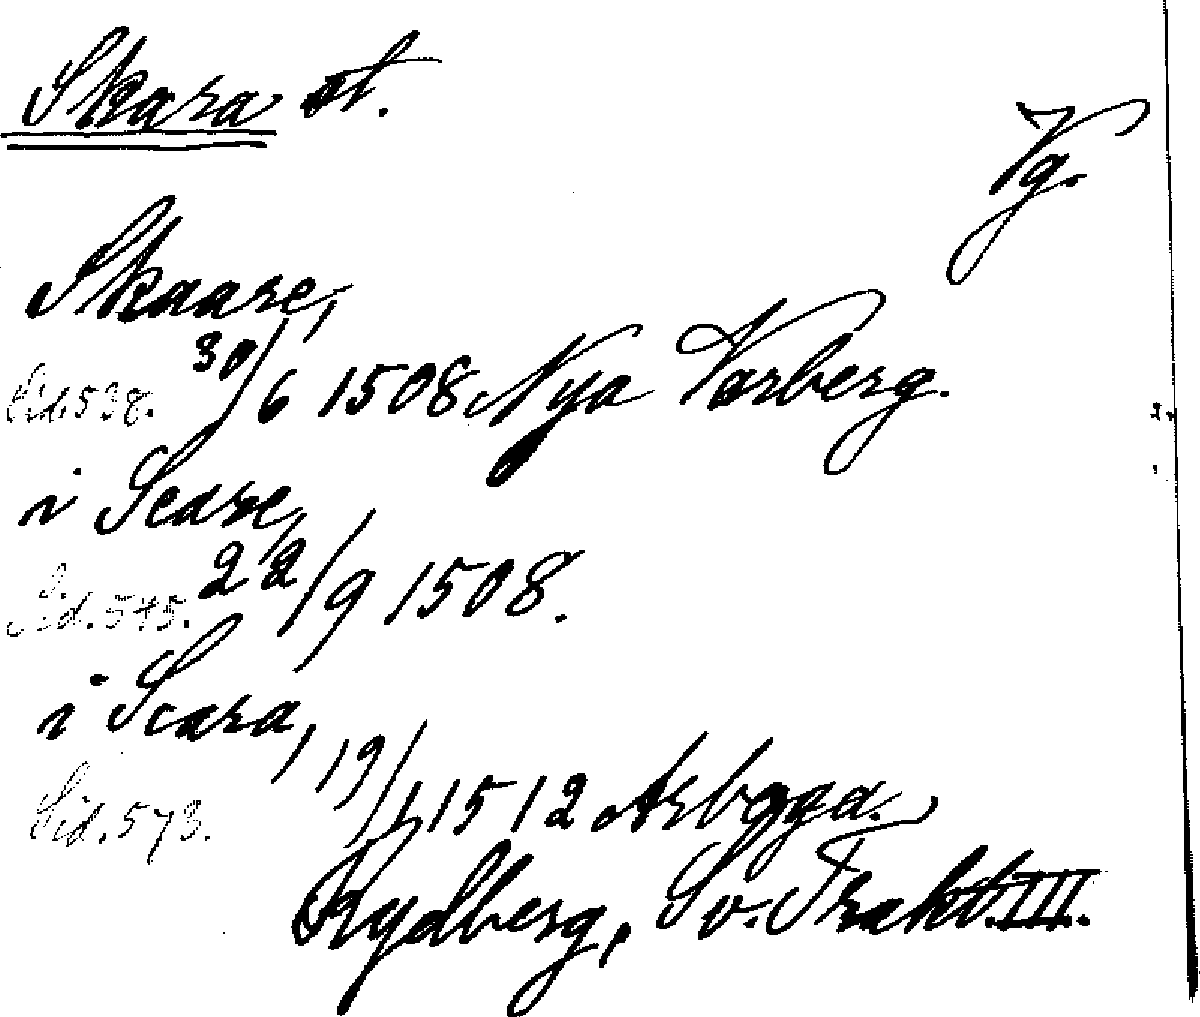 Skara st.
Vg.
Skaare,
Sid. 538. 30/6 1508 Nya Varberg.
i Scare,
Sid. 545. 22/9 1508.
i Scara,
Sid. 573. 19/1 1512 Arboga.
Rydberg, Sv. Trakt. III.